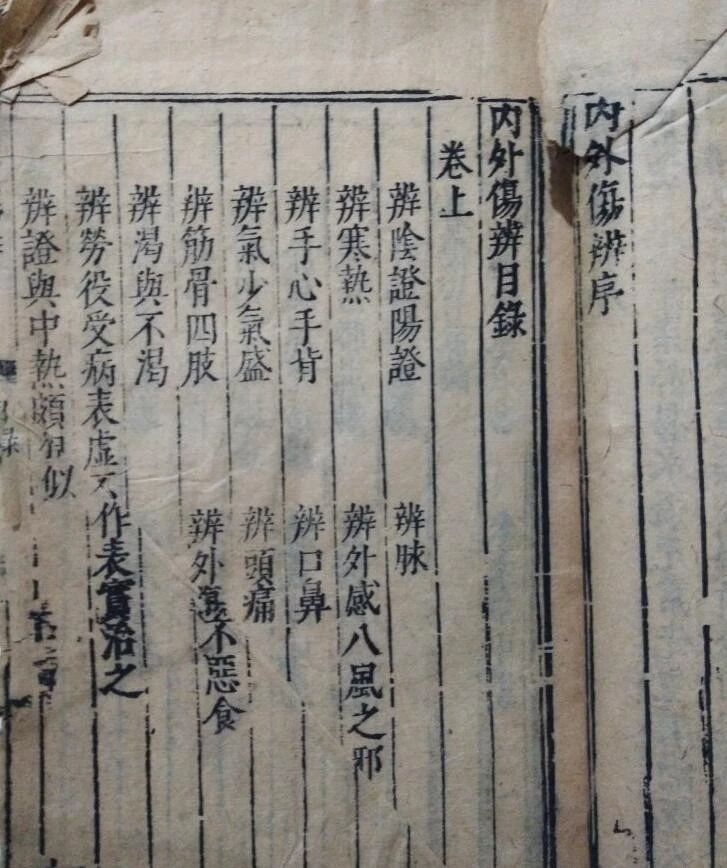 內外傷辨序
內外傷辨目錄
卷上
辨陰證陽證 辨脉
辨寒熱 辨外感八風之邪
辨手心手背 辨口鼻
辨氣少氣盛 辨頭痛
辨筋骨四肢 辨外傷不惡食
辨渴與不渴
辨勞役受病表虛不作表實治之
辨證與中熱頗相似